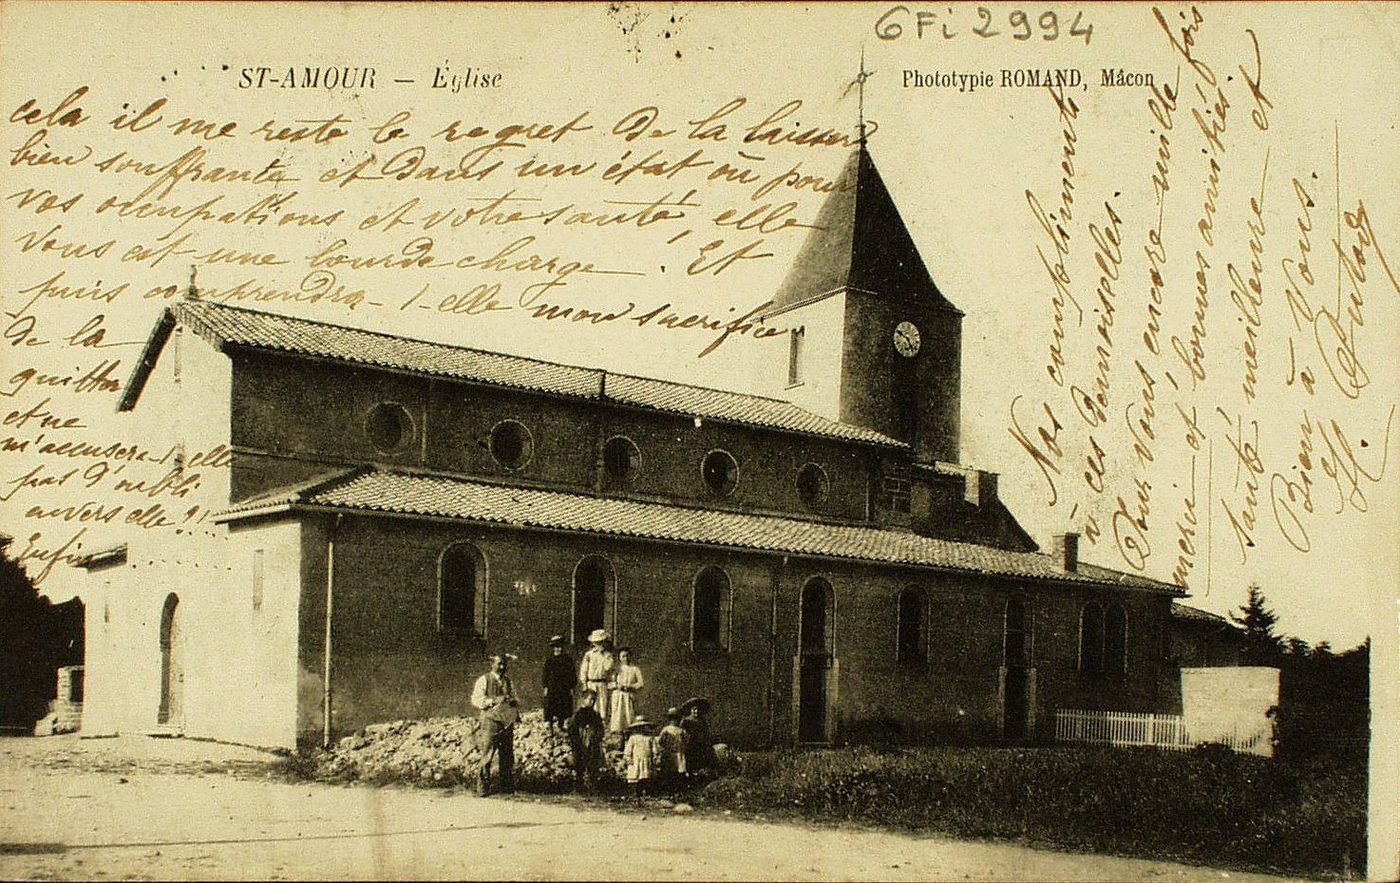 6Fi 2994
ST-AMOUR — Église
Phototypie ROMAND, Mâcon
cela il me reste le regret de la laisser
bien souffrante et dans un état où pour
vos occupations et votre santé, elle
vous est une lourde charge. Et
puis comprendra-t-elle mon sacrifice
de la
quitter
et ne
m'accusera-t-elle
pas d'oubli
envers elle?!...
Enfin
Nos compliments
à ces Demoiselles.
Pour vous encore mille fois
merci et bonnes amitiés.
Santé meilleure et
Bien à Vous.